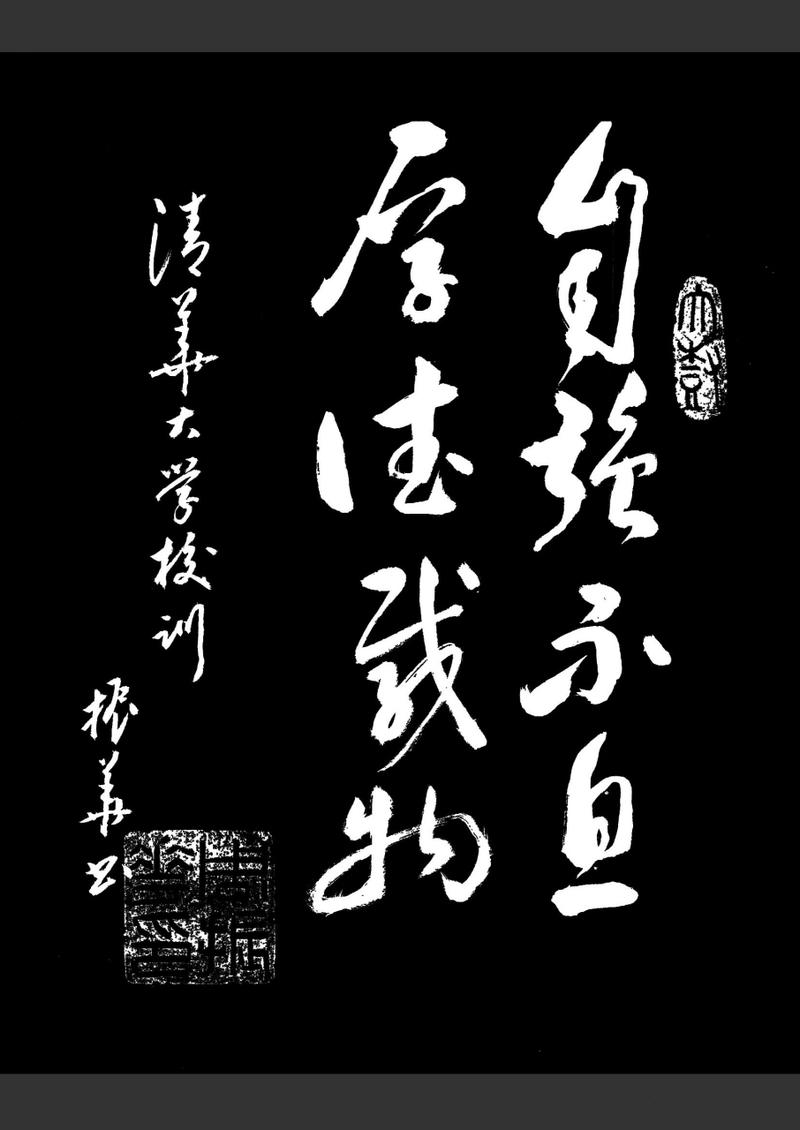 自强不息
厚德载物
清華大学校训
振華书